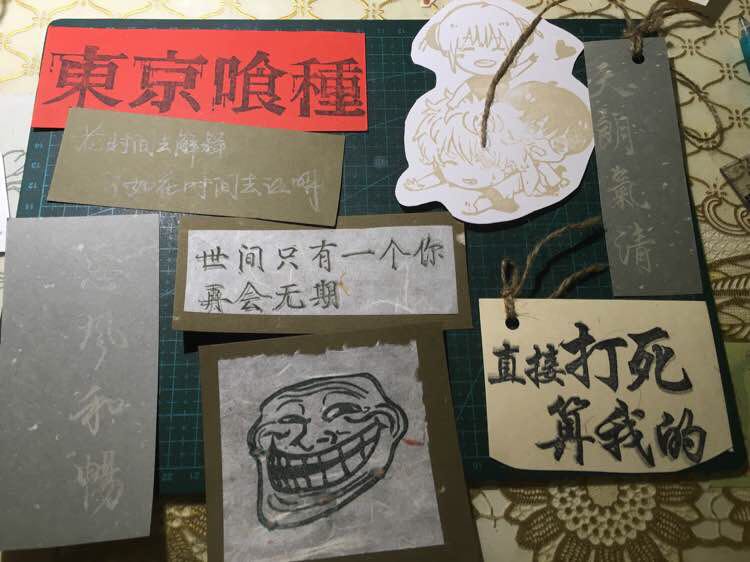 東京喰種
花时间去解释
不如花时间去证明
天朗氣清
世间只有一个你
再会无期
惠風和暢
直接打死
算我的